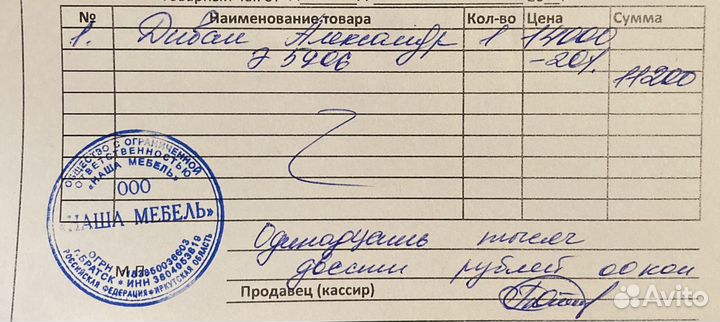 Товарный чек от
№ Наименование товара Кол-во Цена Сумма
1. Диван Александр 1 14000
Э 5906 -20% 11200
ОБЩЕСТВО С ОГРАНИЧЕННОЙ
ОТВЕТСТВЕННОСТЬЮ
«НАША МЕБЕЛЬ»
ООО
«НАША МЕБЕЛЬ»
ОГРН
г.БРАТСК * ИНН 3804053819
РОССИЙСКАЯ ФЕДЕРАЦИЯ * ИРКУТСКАЯ ОБЛАСТЬ
М.П.
Одинадцать тысяч
двести рублей 00 коп
Продавец (кассир)
Avito